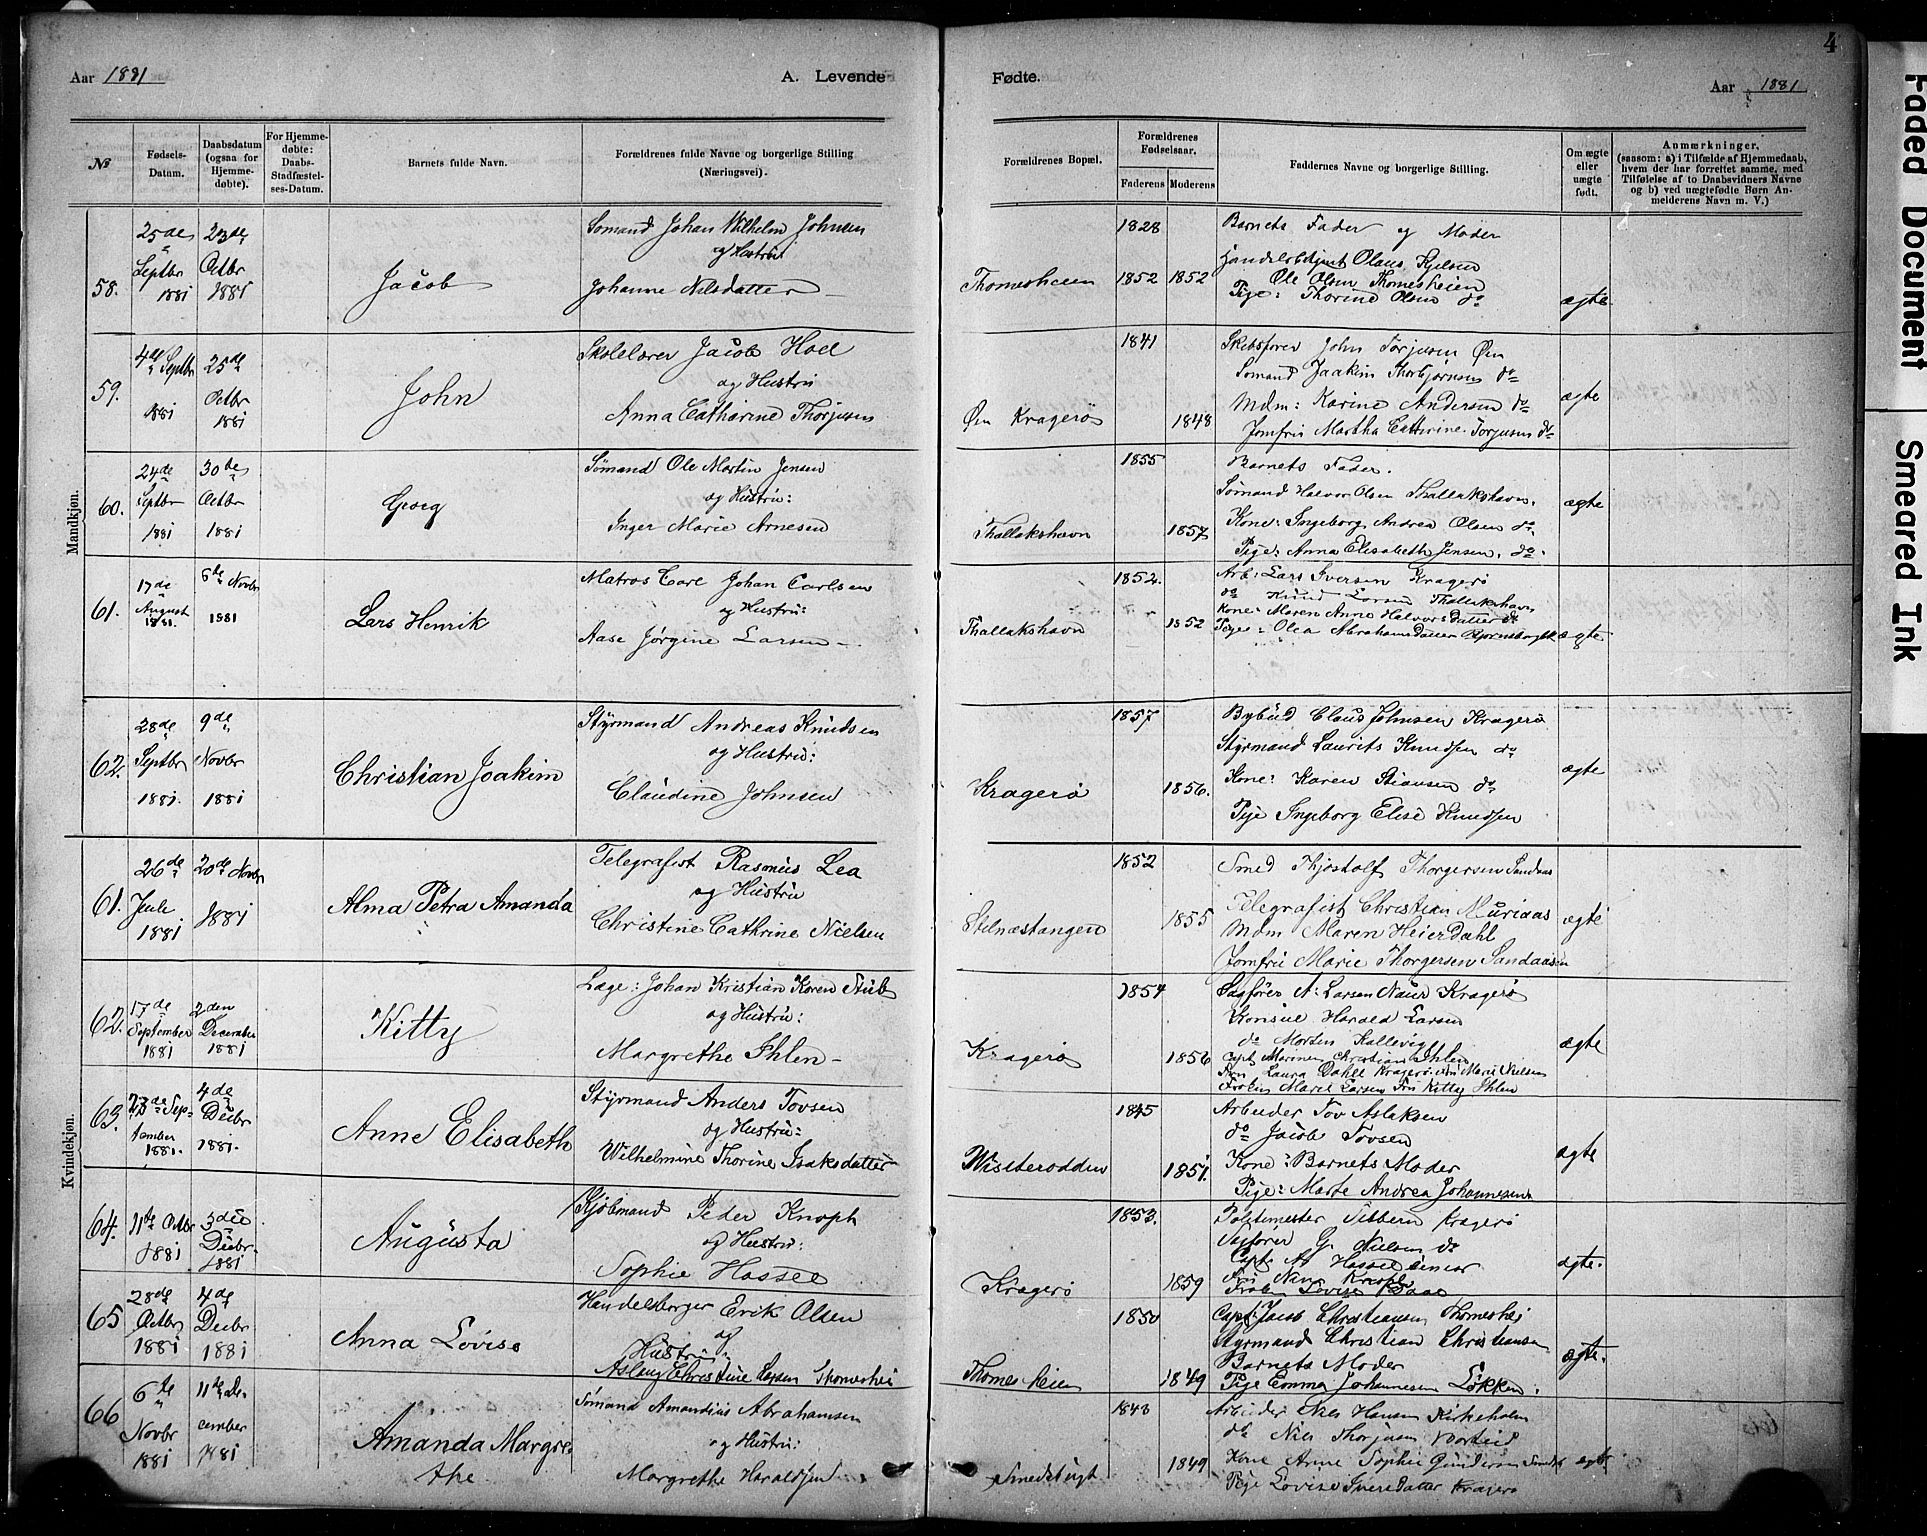 4
Aar 1881
A. Levende
Fødte.
Aar 1881
№
Fødsels-Datum.
Daabsdatum (ogsaa for Hjemmedøbte).
For Hjemmedøbte: Daabs-Stadfæstelses-Datum.
Barnets fulde Navn.
Forældrenes fulde Navne og borgerlige Stilling (Næringsvei).
Forældrenes Bopæl.
Forældrenes Fødselsaar.
Faderens Moderens
Faddernes Navne og borgerlige Stilling.
Om ægte eller uægte født.
Anmærkninger.
(saasom: a) i Tilfælde af Hjemmedaab, hvem der har forrettet samme, med Tilføielse af to Daabsvidners Navne og b) ved uægtefødte Børn Anmelderens Navn m. V.)
Mandkjøn.
58.
25de Septbr 1881
23de Octbr 1881
Jacob
Somand Johan Wilhelm Johnsen
og Hustru
Johanne Nilsdatter
Thomesheien
1828
1852 1852
Barnets Fader og Moder
Olaus Kjelsen
Ole Olsen Thomesheien
Pige: Thorine Olsen do
ægte
59.
4de Septbr 1881
25de Octbr 1881
John
Skolelærer Jacob Hoel
og Hustru
Anna Catharine Thorjusen
Øen Kragerö
1841
1848
Skibsfører John Torjusen Øen
Somand Joakim Thorbjørnsen do
Mdm: Karine Andersen do
Jomfru Martha Cathrine Torjusen do
ægte
60.
24de Septbr 1881
30de Octbr 1881
Georg
Sømand Ole Martin Jensen
og Hustru:
Inger Marie Arnesen
Thallakshavn
1855
1857
Barnets Fader.
Sømand Halvor Olsen Thallakshavn.
Kone: Ingeborg Andrea Olsen do
Pige: Anna Elisabeth Jensen. do.
ægte
61.
17de August 1881.
6te Novbr 1881
Lars Henrik
Matros Carl Johan Carlsen
og Hustru:
Aase Jørgine Larsen
Thallakshavn
1852.
1852
Arb: Lars Iversen Kragerö
do Knud Larsen Thallakshavn
Kone: Maren Anne Halvorsdatter do
Pige: Olea Abrahamsdatter
ægte
62.
28de Septbr 1881.
9de Novbr 1881
Christian Joakim
Styrmand Andreas Knudsen
og Hustru:
Claudine Johnsen
Kragerö
1857
1856.
Bybud Claus Johnsen Kragerö
Styrmand Laurits Knudsen do
Kone: Karen Stiansen do
Pige Ingeborg Elise Knudsen
ægte
Kvindekjøn.
61.
26de Juli 1881
20de Novbr 1881
Alma Petra Amanda
Telegrafist Rasmus Lea
og Hustru
Christine Cathrine Nielsen
Stilnæstangen
1852
1855
Smed Thjostolf Thorgersen Sandaas
Telegrafist Christian Muriaas
Mdm Maren Heierdahl
Jomfru Marie Thorgersen Sandaasen
ægte
62.
17de September 1881
2den December 1881
Kitty
Læge: Johan Kristian Koren Stub
og Hustru:
Margrethe Ihlen
Kragerö
1854
1856
Sagfører N: Larsen Naur Kragerö
Konsul Harald Larsen
do Morten Kallevig
Capt. Christian Ihlen
Fru Laura Dahll Kragerö Fru Marie Nielsen
Frøken Marie Larsen Fru Kitty Ihlen
ægte
63.
27de September 1881.
4de Decbr 1881.
Anne Elisabeth
Styrmand Anders Tovsen
og Hustru:
Wilhelmine Thorine Isaksdatter
Wisiterodden
1845
1851.
Arbeider Tov Aslaksen
do Jacob Tovsen
Kone: Barnets Moder
Pige: Marte Andrea Johannesen
ægte
64.
11te Octbr 1881
3die Decbr. 1881
Augusta
Kjøbmand Peder Knoph
og Hustru:
Sophie Hassel
Kragerö
1853.
1859
Politimester Sibbern Kragerö
Sagfører G. Nielsen do
Capt. A. Hassel senior
Fru Nana Knoph
Frøken Lovise Paae
ægte.
65
28de Octbr 1881
4de Decbr 1881
Anna Lovise
Handelsborger Erik Olsen
og
Hustru
Aslaug Christine Larsen Thomeshei
Thomesheien
1850
1849
Capt: Jacob Christiansen Thomeshei
Styrmand Christian Christiansen
Barnets Moder
Pige Emma Johannesen Løkken.
ægte.
66
6te Novbr 1881
11te December 1881
Amanda Margrethe
Sømand Amandius Abrahamsen
og Hustru:
Margrethe Haraldsen
Smedsbugt
1843
1849
Arbeider Nils Hansen Kirkeholm
do Nils Thorjusen
Kone Anne Sophie Gundersen
Pige Lovise Iversdatter Kragerö
ægte
Faded Document
Smeared Ink